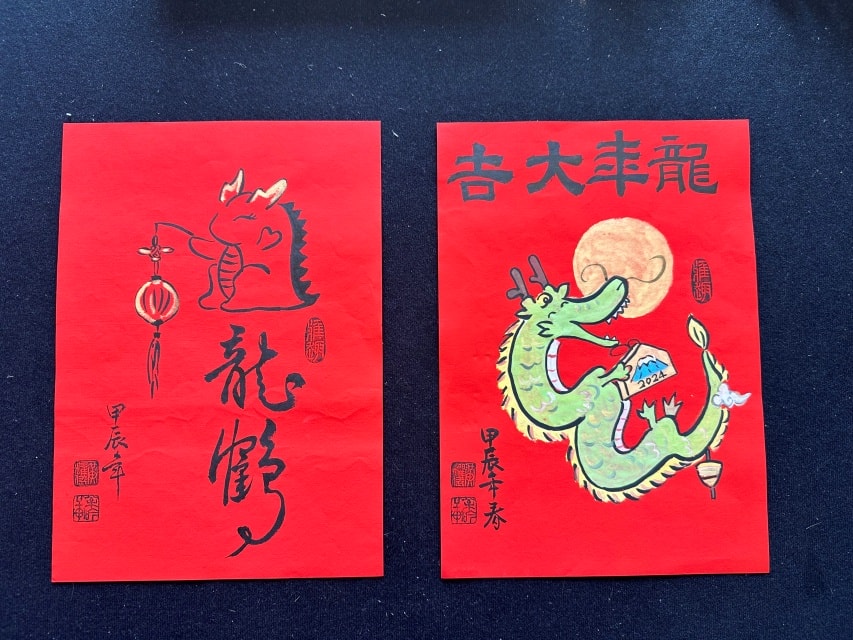 龍鶴
甲辰年
龍年大吉
2024
甲辰年春